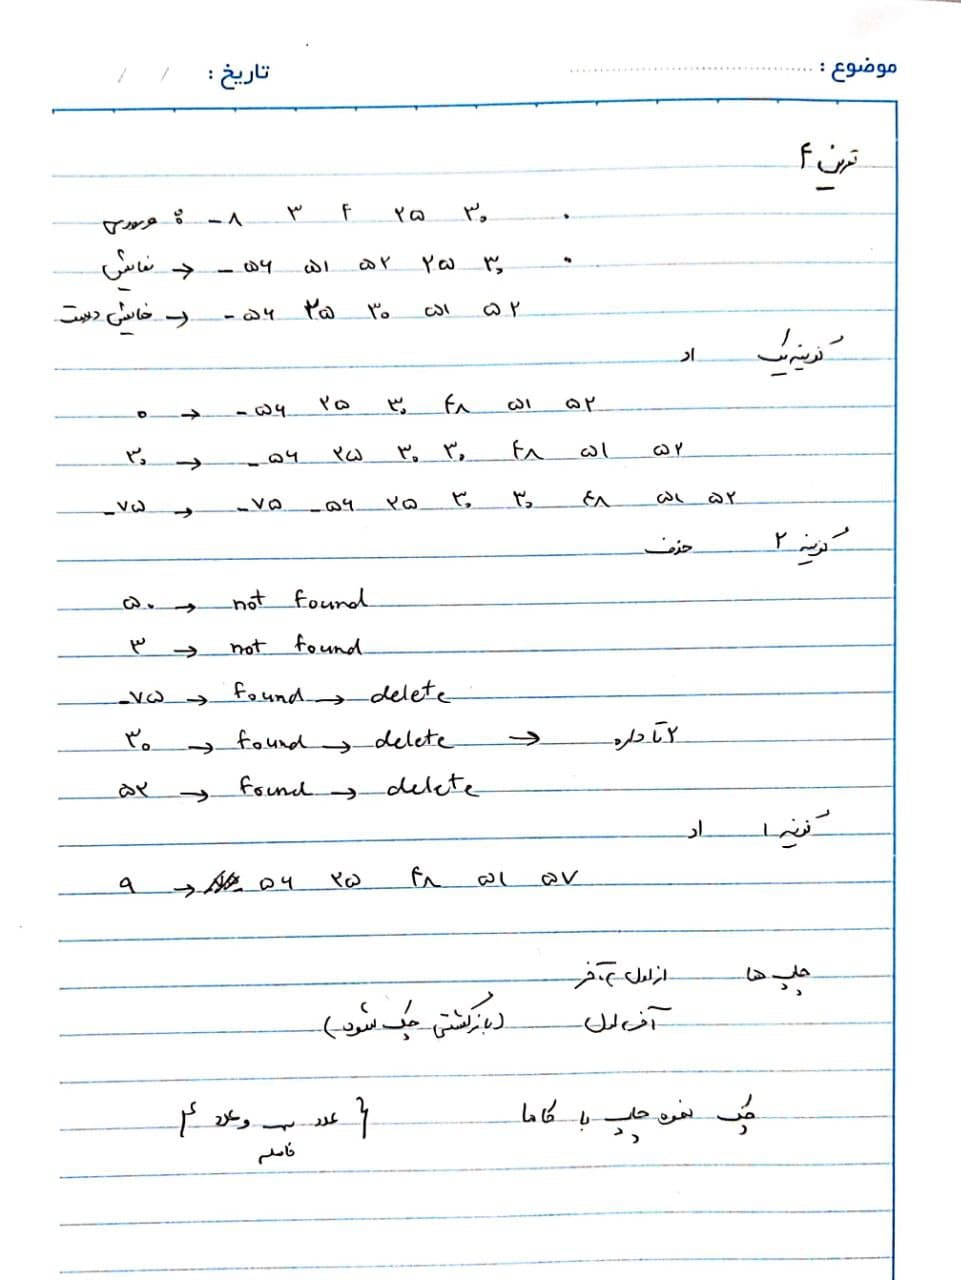 موضوع :
تاریخ : / /
تمرین ۴
ورودی : -۸ ۳ ۴ ۲۵ ۳۰ ۰
نمایش → -۵۶ ۵۱ ۵۲ ۲۵ ۳۰ ۰
نمایش درست → -۵۶ ۲۵ ۳۰ ۵۱ ۵۲
گزینه یک اد
۰ → -۵۶ ۲۵ ۳۰ ۴۸ ۵۱ ۵۲
۳۰ → -۵۶ ۲۵ ۳۰ ۳۰ ۴۸ ۵۱ ۵۲
-۷۵ → -۷۵ -۵۶ ۲۵ ۳۰ ۳۰ ۴۸ ۵۱ ۵۲
گزینه ۲ حذف
۵۰ → not found
۳ → not found
-۷۵ → found → delete
۳۰ → found → delete → ۲ تا داره
۵۲ → found → delete
گزینه ۱ اد
۹ → -۵۶ ۲۵ ۴۸ ۵۱ ۵۷
چاپ ها از اول تا آخر
آخر اول (بازگشتی چک شود)
چک نحوه چاپ با کاما { عدد و عدد }
فاصله